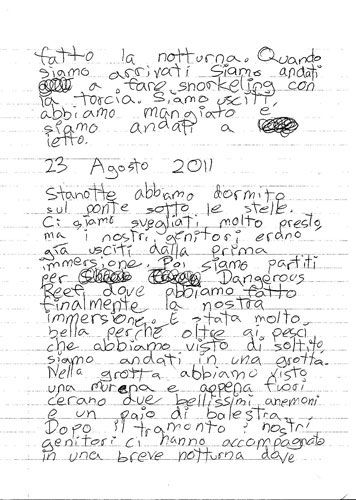 fatto la notturna. Quando
siamo arrivati siamo andati
a fare snorkeling con
la torcia. Siamo usciti,
abbiamo mangiato e
siamo andati a
letto.
23 Agosto 2011
Stanotte abbiamo dormito
sul ponte sotto le stelle.
Ci siamo svegliati molto presto,
ma i nostri genitori erano
già usciti dalla prima
immersione. Poi siamo partiti
per Dangorous
Reef dove abbiamo fatto
finalmente la nostra
immersione. È stata molto
bella perché oltre ai pesci
che abbiamo visto di solito
siamo andati in una grotta.
Nella grotta abbiamo visto
una murena e appena fuori
cerano due bellissimi anemoni
e un paio di balestra.
Dopo il tramonto i nostri
genitori ci hanno accompagnato
in una breve notturna dove